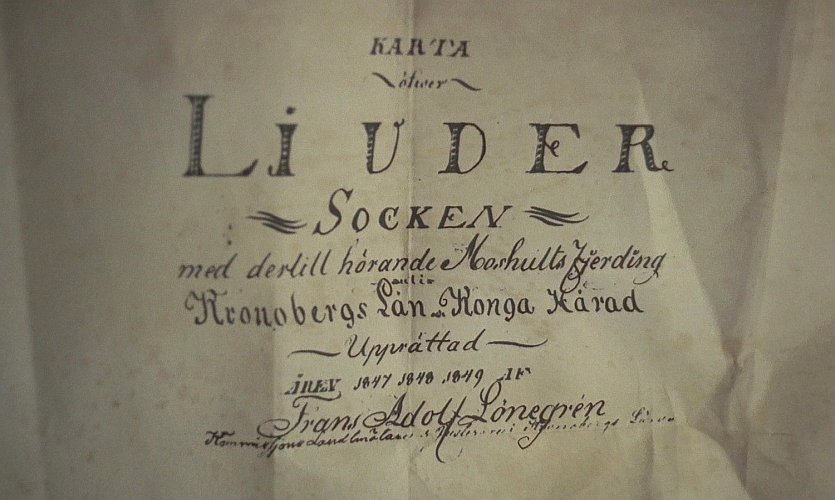 KARTA
öfwer
LiUDER
SOCKEN
med dertill hörande Moshults Fjerding
Kronobergs Län Konga Härad
Upprättad
ÅREN 1847 1848 1849 AF
Frans Adolf Lönegrén
Kommissions Landtmätare i Kronobergs Län